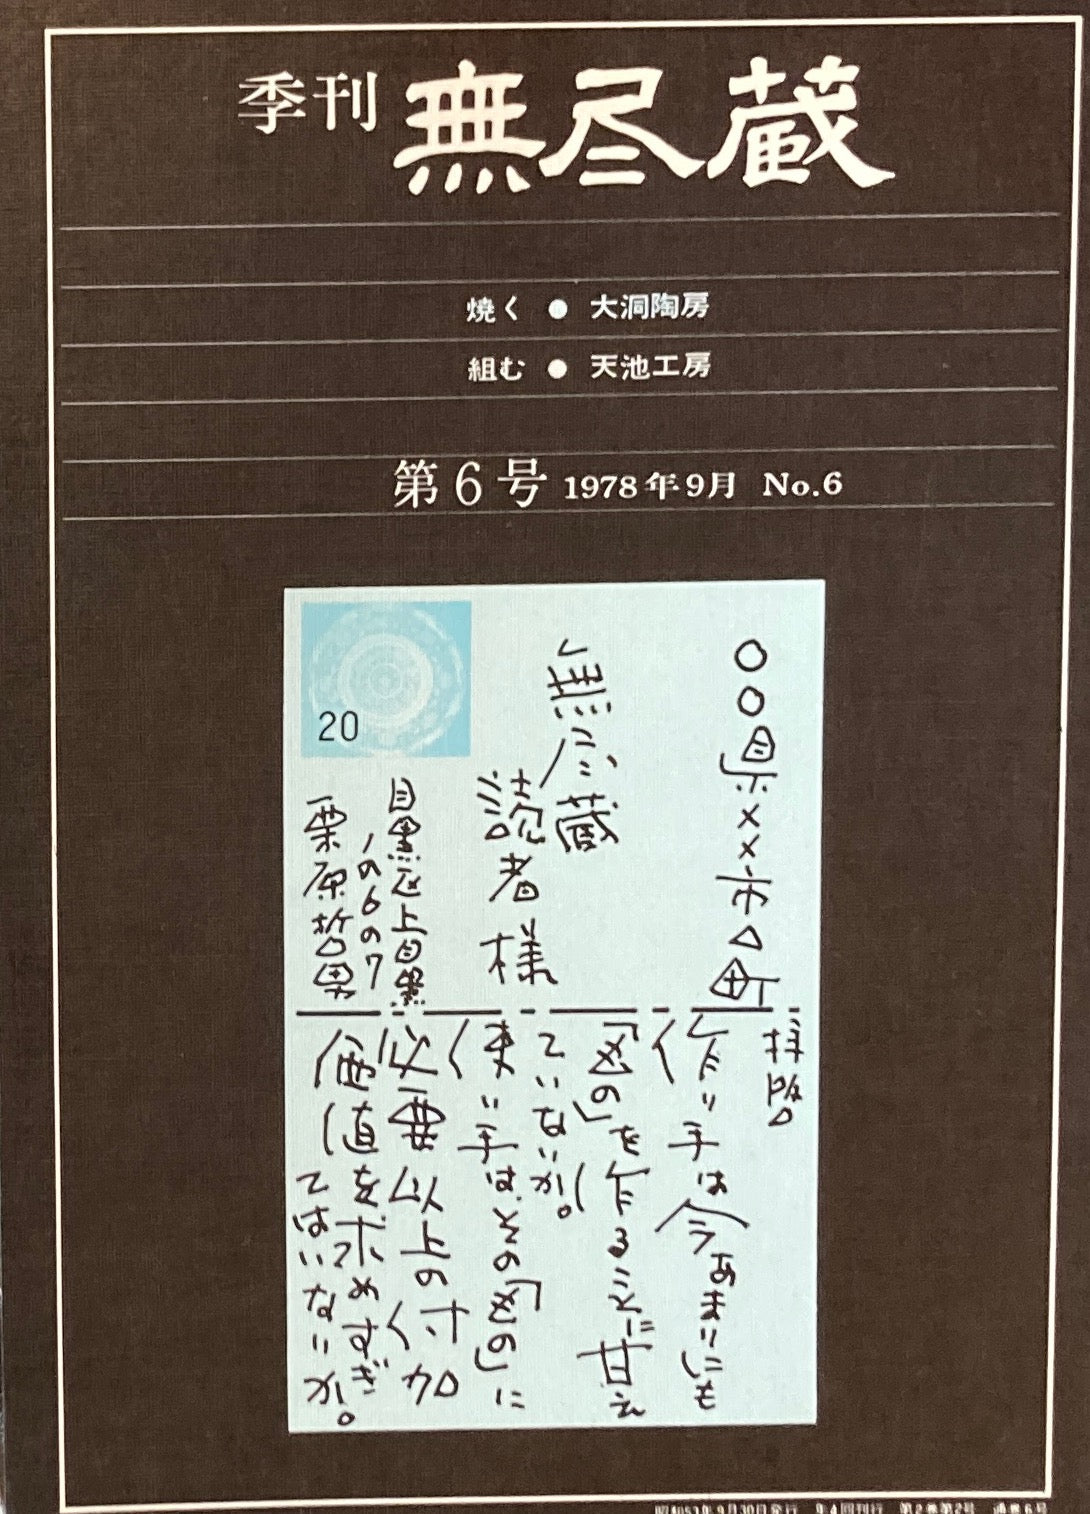 季刊 無尽蔵
焼く ● 大洞陶房
組む ● 天池工房
第6号 1978年9月 No.6
20
○○県××市△町
無尽蔵
読者様
目黒区上目黒
1の6の7
栗原哲男
拝啓
作り手は今あまりにも
「もの」を作ることに甘え
ていないか。
使い手は、その「もの」に
必要以上の付加
価値を求めすぎ
てはいないか。
昭和53年9月30日発行 年4回刊行 第2巻第2号 通巻6号